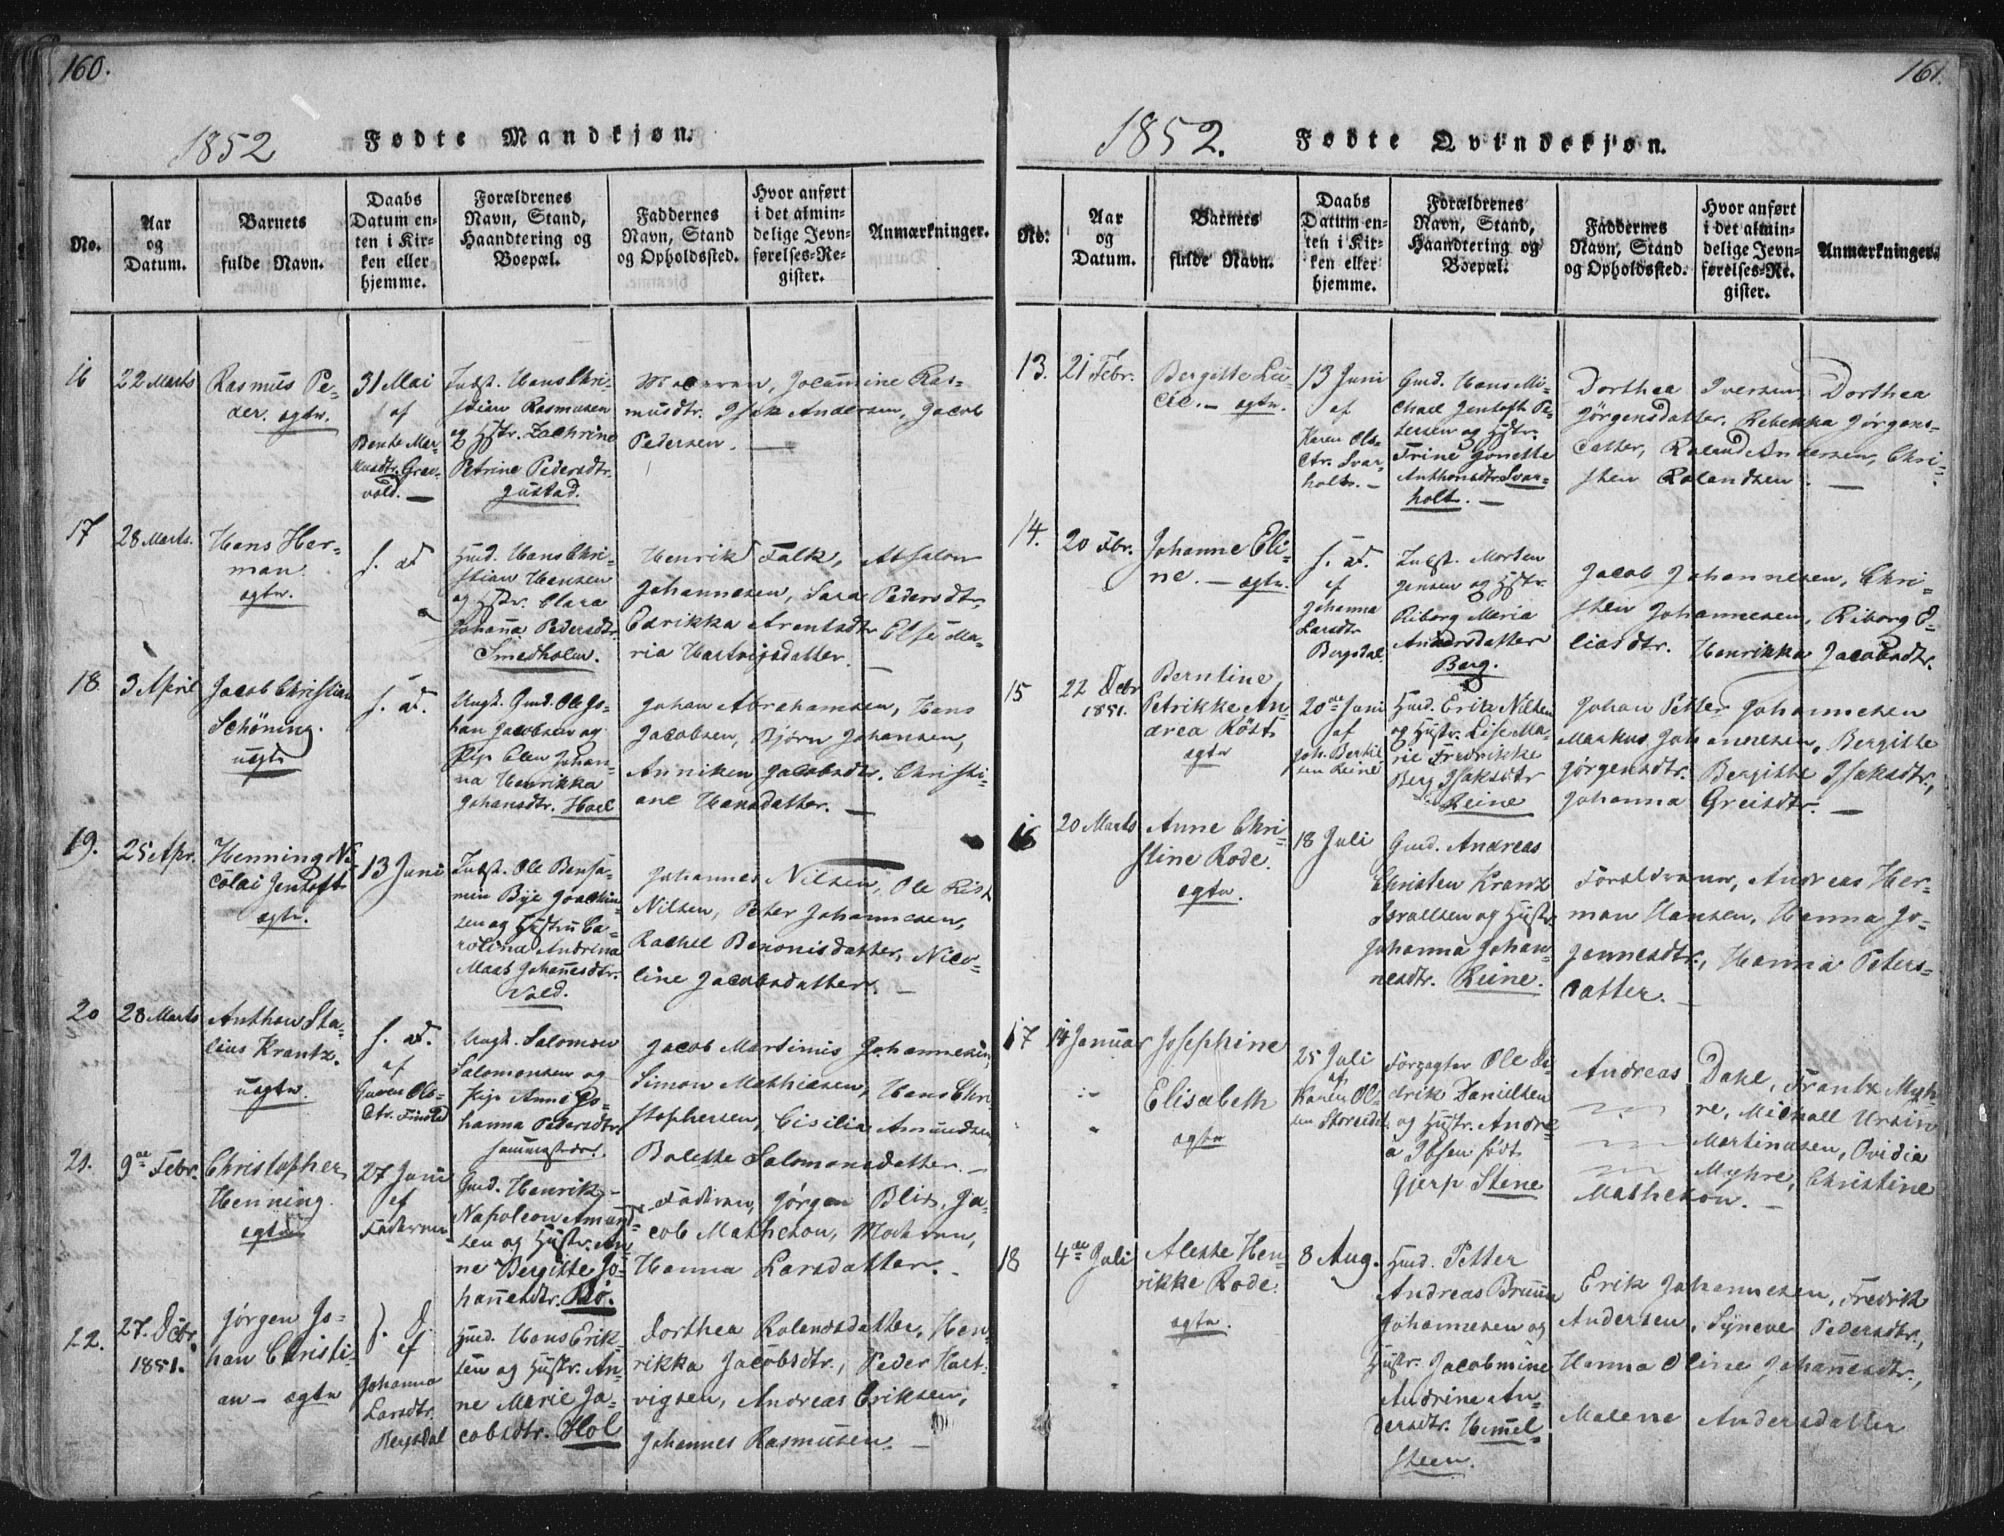 160.
1852 Fødte Mandkjøn.
No.
Aar
og
Datum.
Barnets
fulde Navn.
Daabs
Datum en-
ten i Kir-
ken eller
hjemme.
Forældrenes
Navn, Stand,
Haandtering og
Boepæl.
Faddernes
Navn, Stand
og Opholdssted.
Hvor anført
i det almin-
delige Jevn-
førelses-Re-
gister.
Anmærkninger.
16
22 Marts
Rasmus Pe-
der. ægte.
31 Mai
af
Bente Mar-
kusdtr. Grav-
vold.
Indst. Hans Chri-
stian Rasmusen
og Hstr. Zachrine
Petrine Pedersdtr.
Gustad.
Moderen, Jocumine Ras-
musdtr. Isak Andersen, Jacob
Pedersen.
17
28 Marts.
Hans Her-
man.
ægte.
s. D.
Huusm. Hans Chri-
stian Hansen
og Hstr. Clara
Johanna Pedersdtr.
Smedholm.
Henrik Falk, Absalon
Johannesen, Sara Pedersdtr,
Edrikka Arentsdtr Else Ma-
ria Hartvigsdatter.
18.
3 April
Jacob Christian
Schöning.
uægte
s. D.
Ungk. Gmd. Ole Jo-
han Jacobsen og
Pige Elen Johan-
na Henrikka
Johansdtr. Hoel
Johan Abrahamsen, Hans
Jacobsen, Bjørn Johansen,
Anniken Jacobsdtr. Christi-
ane Hansdatter.
19.
25 Apr.
Henning Ni-
colai Jentoft
ægte.
13 Juni
Indst. Ole Benja-
min Bye Joachim-
sen og Hustru Ca-
rolina Andrina
Maas Johanesdtr.
Vold.
Johannes Nilsen, Ole Rist
Nilsen, Peter Johannesen,
Rachel Benonisdatter, Nico-
line Jacobsdatter.
20
28 Marts
Anthon Sta-
lius Krantz.
uægte.
s. D.
af
Ols-
dtr. Finstad
Ungk. Salomon
Salomonsen og
Pige Anne Jo-
hanna Pedersdtr.
Jacob Martinus Johannesen,
Simon Mathiesen, Hans Chri-
stophersen, Cicilia Amundsen
Bolette Salomonsdatter.
21.
9de Febr.
Christopher
Henning.
ægte
27 Juni
af
Faderen
Gmd. Henrik
Napoleon Amund-
sen og Hustr. An-
ne Bergitte Jo-
hannesdtr. Rø.
Faderen, Jørgen Blix, Ja-
cob Matheson, Moderen,
Hanna Larsdatter.
22.
27. Dcbr.
1851.
Jørgen Jo-
han Christi-
an – ægte
s. D.
af
Johanna
Larsdtr.
Bergsdal
Huusm. Hans Erik-
sen og Hustr. An-
ne Marie Ja-
cobsdtr. Hol
Dorthea Rolandsdatter, Hen-
rikka Jacobsdtr., Peder Hart-
vigsen, Andreas Eriksen,
Johannes Rasmusen.
161.
1852. Fødte Qvindekjøn.
No.
Aar
og
Datum.
Barnets
fulde Navn.
Daabs
Datum en-
ten i Kir-
ken eller
hjemme.
Forældrenes
Navn, Stand,
Haandtering og
Boepæl.
Faddernes
Navn, Stand
og Opholdssted.
Hvor anført
i det almin-
delige Jevn-
førelses-Re-
gister.
Anmærkninger.
13.
21 Febr.
Bergitte Lu-
cie. – ægte.
13 Juni
af
Karen Ols-
dtr. Svar-
holt. –
Gmd. Hans Mi-
chael Jentoft Pe-
tersen og Hstr.
Trine Jonette
Anthonsdtr. Svar-
holt. –
Dorthea Iversen, Dorthea
Jørgensdatter, Rebekka Jørgens-
datter, Roland Andersen, Chri-
sten Rolandsen.
14.
20 Fbr.
Johanne Eli-
ne. – ægte.
s. D.
af
Johanna
Larsdtr
Bergsdal
Indst. Morten
Jensen og Hstr.
Riborg Maria
Andersdatter
Berg.
Jacob Johannesen, Chri-
sten Johannesen, Riborg E-
liasdtr. Henrikka Jacobsdtr.
15
22 Dcbr
1851.
Berntine
Petrikke An-
drea Röst
ægte
20de Juni
af
Joh. Bertil-
sen Reine
Huusm. Erik Nilsen
og Hustr. Lise Ma-
rie Fredrikke
Berg Isaksdtr
Reine
Johan Petter Johannesen
Markus Johannesen, Bergitte
Jørgensdtr. Bergitte Isaksdtr,
Johanna Greisdtr.
16
20 Marts
Anne Chri-
stine Rode.
ægte.
18 Juli
Gmd. Andreas
Christen Krantz
Israelsen og Hustr.
Johanna Johan-
nesdtr. Reine.
Forældrene, Andreas Her-
man Hansen, Hanna Jo-
hannesdtr., Hanna Peters-
datter.
17
14 Januar
Josephine
Elisabeth
ægte
25 Juli
af
Karen Ol-
sen Storeide
Forpagter Ole Di-
drik Danielsen
og Hustr. Andre-
a Ibsen født
Gjerp Stene
Andreas Dahl, Frantz Myh-
re, Michall Ursin
Martinusen, Ovidia
Myhre, Christine
Matheson. –
18
4de Juli
Alette Hen-
rikke Rode.
ægte.
8 Aug.
Huusm. Petter
Andreas Bruun
Johannesen og
Hustr. Jacobmine
Andrine An-
dersdtr. Himel-
steen.
Erik Johannesen, Fredrik
Andersen, Syneve Pedersdtr.,
Hanna Oline Johanesdtr.,
Malene Andersdatter